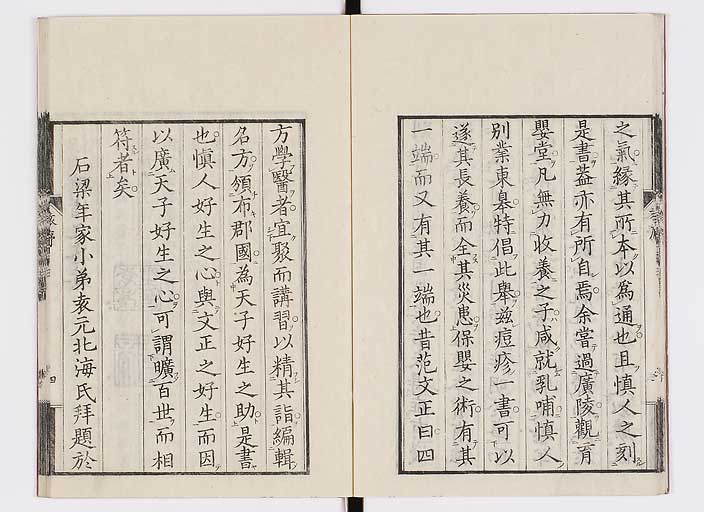 之氣緣其所本以為通也且慎人之刻
是書葢亦有所自焉余嘗過廣陵觀育
嬰堂凡無力收養之子咸就乳哺慎人
別業東臯特倡此舉茲痘疹一書可以
遂其長養而全其災患保嬰之術有其
一端而又有其一端也昔范文正曰四
方學醫者宜聚而講習以精其詣編輯
名方頒布郡國為天子好生之助是書
也慎人好生之心與文正之好生而因
以廣天子好生之心可謂曠百世而相
符者矣
石梁年家小弟袁元北海氏拜題於
四